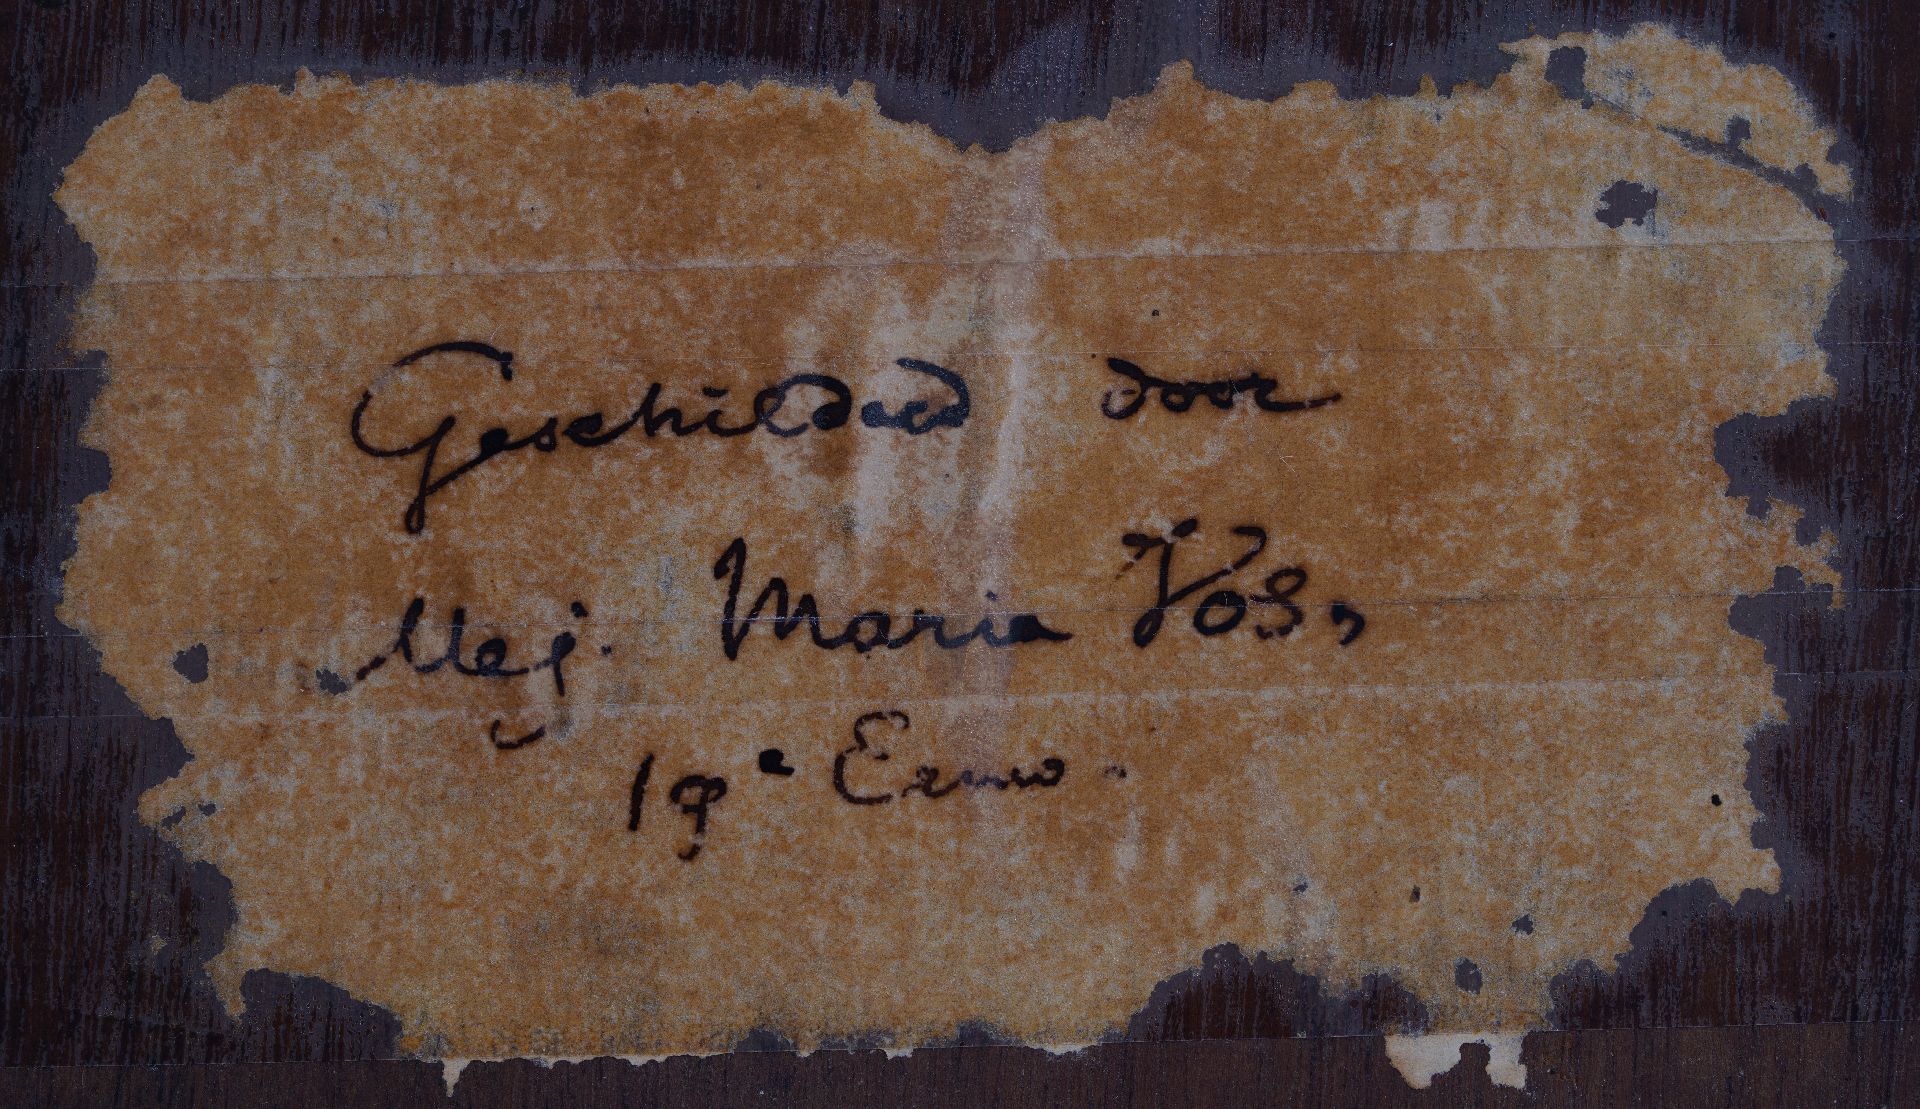 Geschilderd door
Mej. Maria Vos,
19e Eeuw.